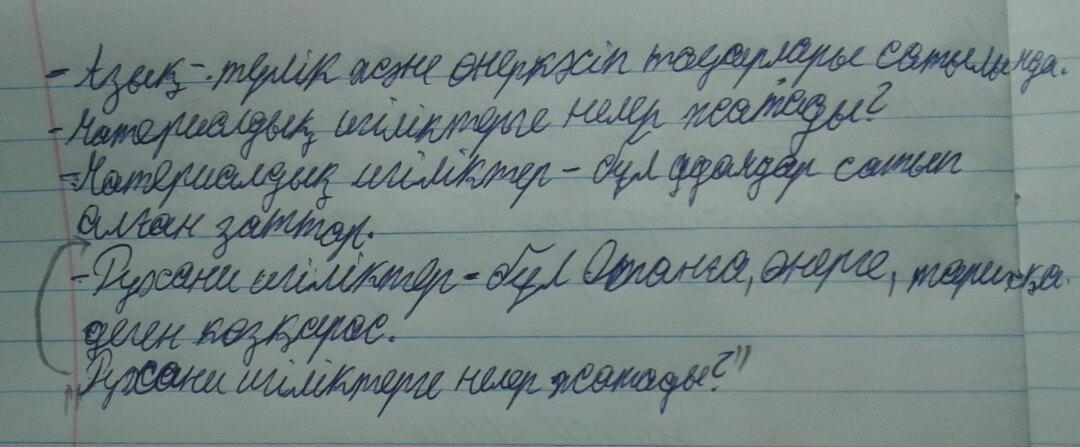 - Азық-түлік және өнеркәсіп тауарлары сатылында.
- Материалдық игіліктерге нелер жатады?
- Материалдық игіліктер - бұл адамдар сатып
алған заттар.
- Рухани игіліктер - бұл Отанға, өнерге, тарихқа
деген көзқарас.
"Рухани игіліктерге нелер жатады?"